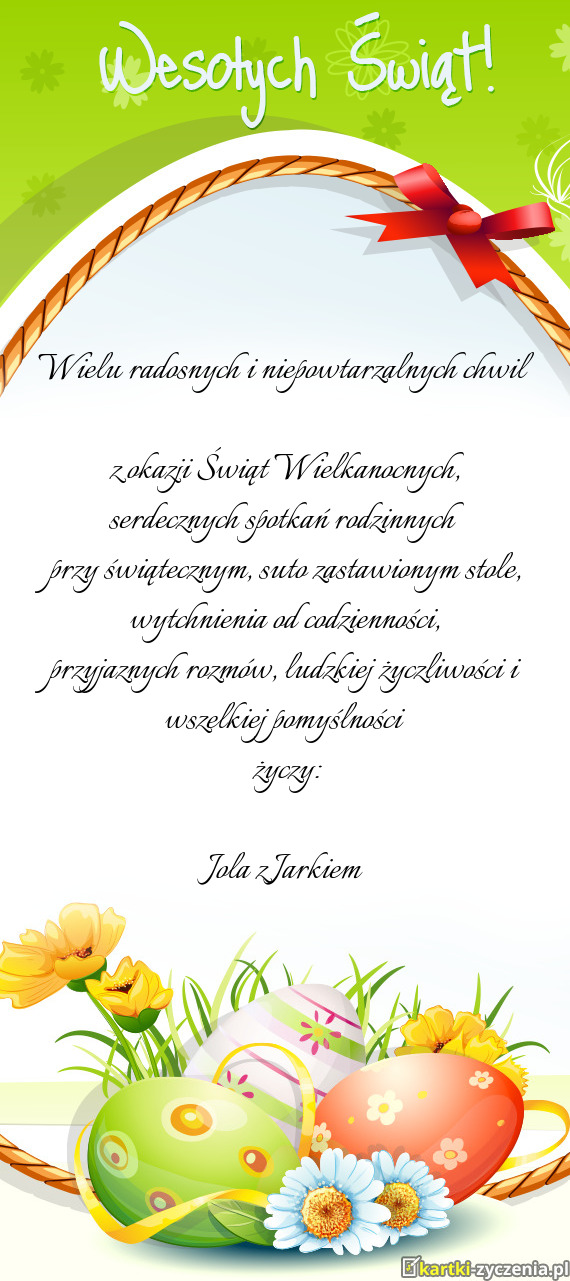 Wesołych Świąt!
Wielu radosnych i niepowtarzalnych chwil
z okazji Świąt Wielkanocnych,
serdecznych spotkań rodzinnych
przy świątecznym, suto zastawionym stole,
wytchnienia od codzienności,
przyjaznych rozmów, ludzkiej życzliwości i
wszelkiej pomyślności
życzy:
Jola z Jarkiem
kartki-zyczenia.pl